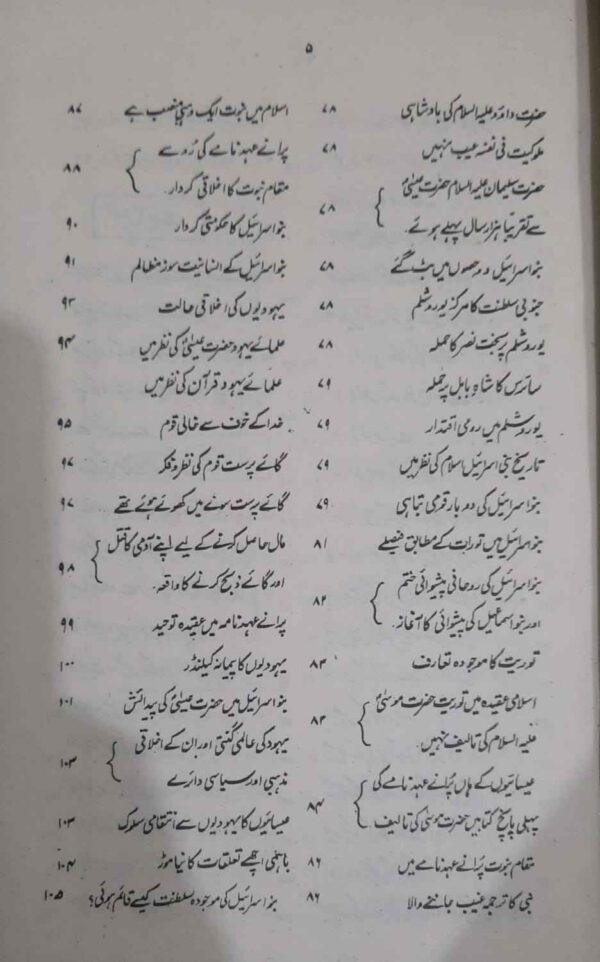 ۵
حضرت داؤد علیہ السلام کی بادشاہی ۷۸
ملوکیت فی نفسہ عیب نہیں ۷۸
حضرت سلیمان علیہ السلام حضرت عیسیٰؑ
سے تقریباً ہزار سال پہلے ہوئے۔ ۷۸
بنو اسرائیل دو حصوں میں بٹ گئے ۷۸
جنوبی سلطنت کا مرکز یوروشلم ۷۸
یوروشلم پر بخت نصر کا حملہ ۷۸
سائرس کا شاہِ بابل پر حملہ ۷۹
یوروشلم میں رومی اقتدار ۷۹
تاریخ بنی اسرائیل اسلام کی نظر میں ۷۹
بنو اسرائیل کی دو بار قومی تباہی ۷۹
بنو اسرائیل میں تورات کے مطابق فیصلے ۸۱
بنو اسرائیل کی روحانی پیشوائی ختم
اور بنو اسماعیل کی پیشوائی کا آغاز۔ ۸۲
توریت کا موجودہ تعارف ۸۳
اسلامی عقیدہ میں توریت حضرت موسیٰؑ
علیہ السلام کی تالیف نہیں۔ ۸۳
عیسائیوں کے ہاں پُرانے عہد نامے کی
پہلی پانچ کتابیں حضرت موسیٰ کی تالیف ۸۴
مقام نبوت پُرانے عہد نامے میں ۸۶
نبی کا ترجمہ غیب جاننے والا ۸۶
اسلام میں نبوت ایک وہبی منصب ہے ۸۷
پرانے عہد نامے کی رُو سے
مقام نبوت کا اخلاقی کردار۔ ۸۸
بنو اسرائیل کا حکومتی کردار ۹۰
بنو اسرائیل کے انسانیت سوز مظالم ۹۱
یہودیوں کی اخلاقی حالت ۹۳
علمائے یہود حضرت عیسیٰؑ کی نظر میں ۹۴
علمائے یہود قرآن کی نظر میں
خدا کے خوف سے خالی قوم ۹۵
گائے پرست قوم کی نظر و فکر ۹۷
گائے پرست سونے میں کھوئے ہوئے تھے ۹۷
مال حاصل کرنے کے لیے اپنے آدمی کا قتل
اور گائے ذبح کرنے کا واقعہ۔ ۹۸
پرانے عہد نامہ میں عقیدہ توحید ۹۹
یہودیوں کا پیمانہ کیلنڈر ۱۰۰
بنو اسرائیل میں حضرت عیسیٰؑ کی پیدائش ۱۰۱
یہود کی عالمی گنتی اور ان کے اخلاقی
مذہبی اور سیاسی دائرے ۱۰۳
عیسائیوں کا یہودیوں سے انتقامی سلوک ۱۰۳
باہمی اچھے تعلقات کا نیا موڑ ۱۰۴
بنو اسرائیل کی موجودہ سلطنت کیسے قائم ہوئی؟ ۱۰۵